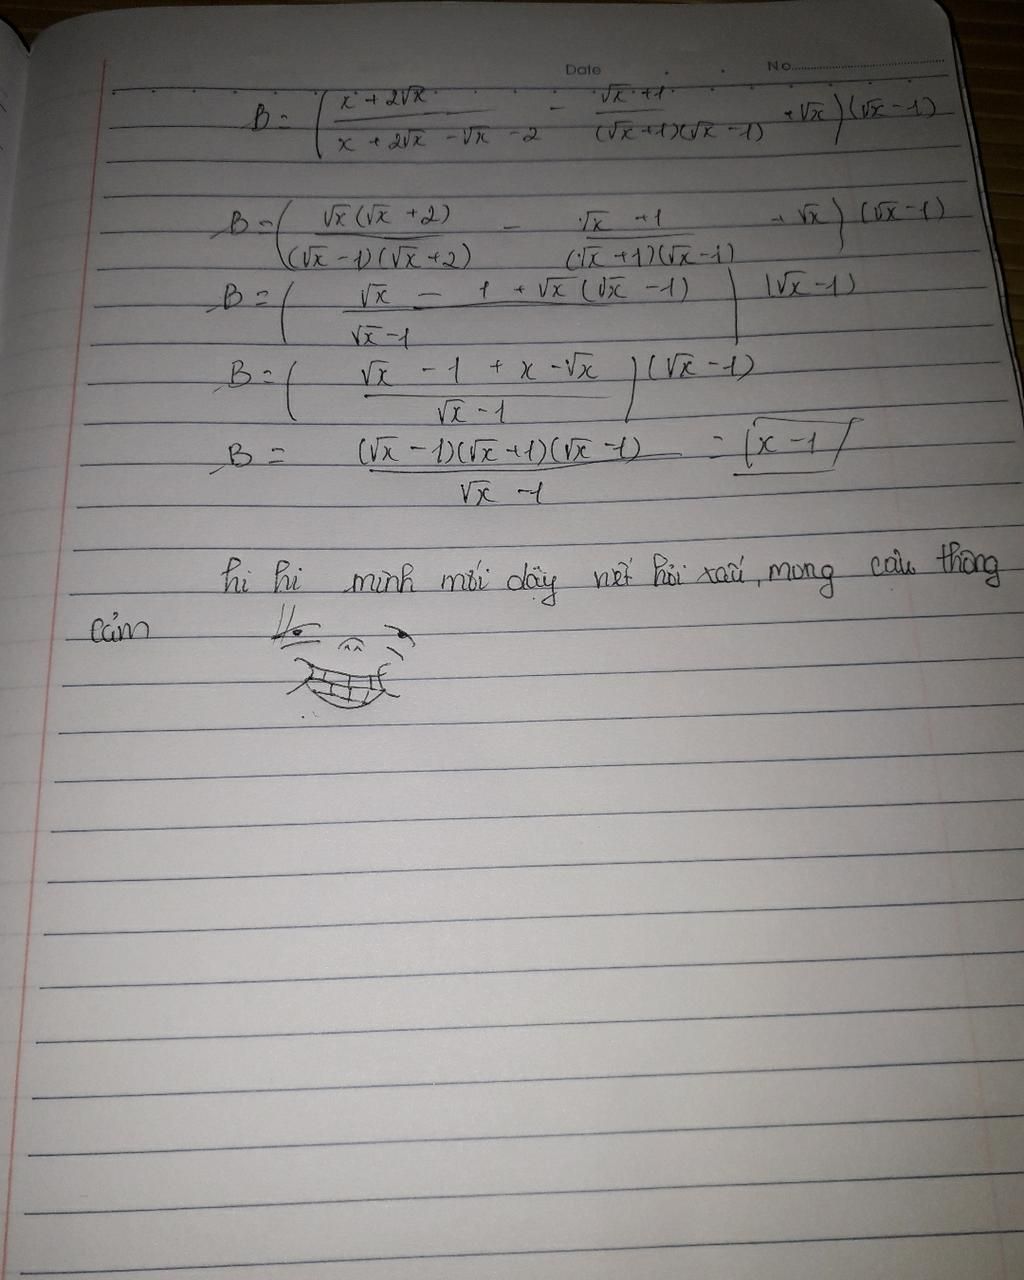 Date No
B = ( (x + 2√x)/(x + 2√x - √x - 2) - (√x + 1)/((√x + 1)(√x - 1)) + √x ) (√x - 1)
B = ( (√x (√x + 2))/((√x - 1)(√x + 2)) - (√x + 1)/((√x + 1)(√x - 1)) + √x ) (√x - 1)
B = ( (√x - 1 + √x (√x - 1))/(√x - 1) ) (√x - 1)
B = ( (√x - 1 + x - √x)/(√x - 1) ) (√x - 1)
B = ((√x - 1)(√x + 1)(√x - 1))/(√x - 1) = x - 1
hi hi mình mới dậy nét hơi xấu, mong cậu thông
cảm